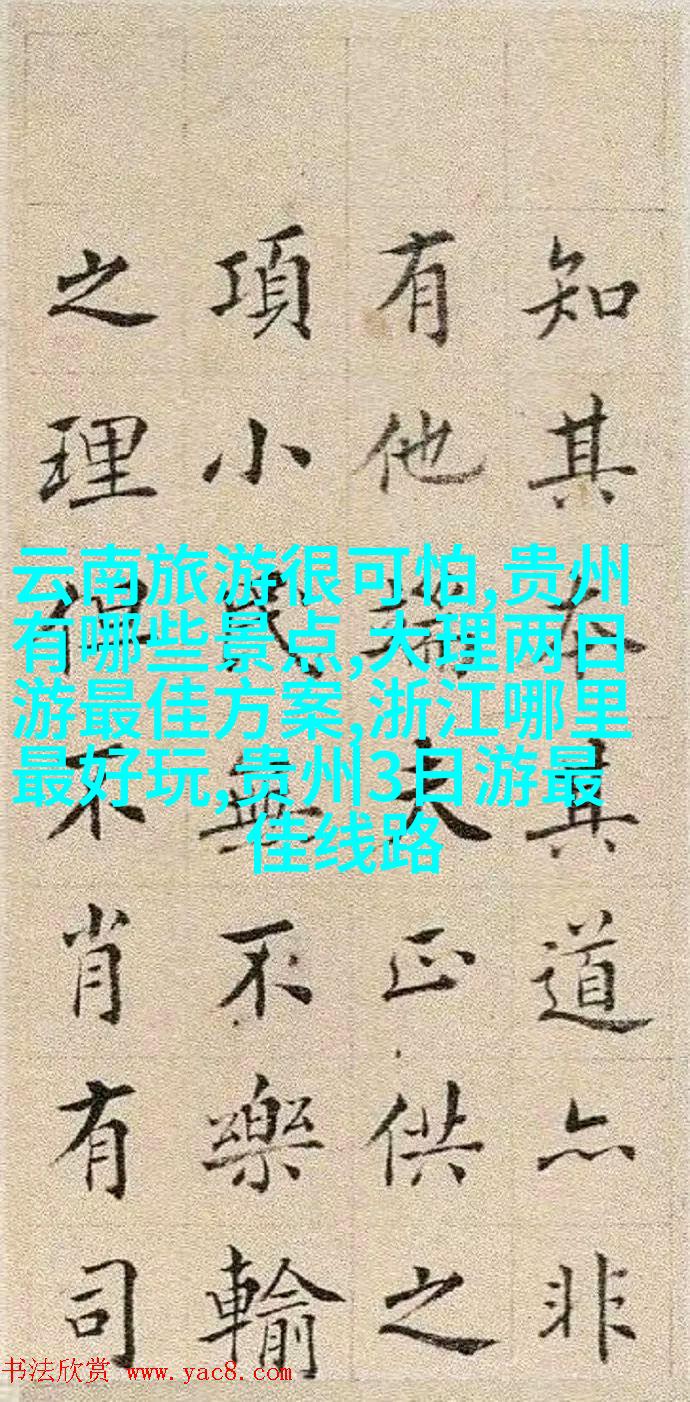 知其其道亦非
有他端夫正供之
項小民無不樂輸
之理但不肖有司
云南旅游很可怕,贵州
有哪些景点,大理两日
游最佳方案,浙江哪里
最好玩,贵州3日游最
佳线路
书法欣赏 www.yac8.com